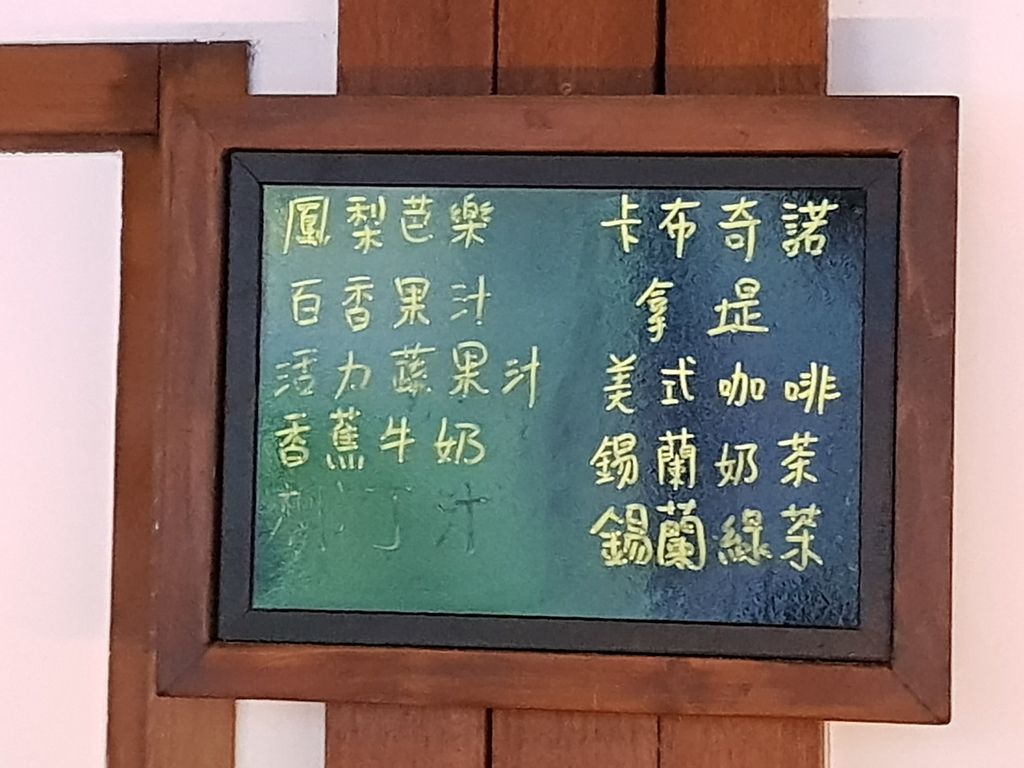 鳳梨芭樂
百香果汁
活力蔬果汁
香蕉牛奶
柳丁汁
卡布奇諾
拿堤
美式咖啡
錫蘭奶茶
錫蘭綠茶